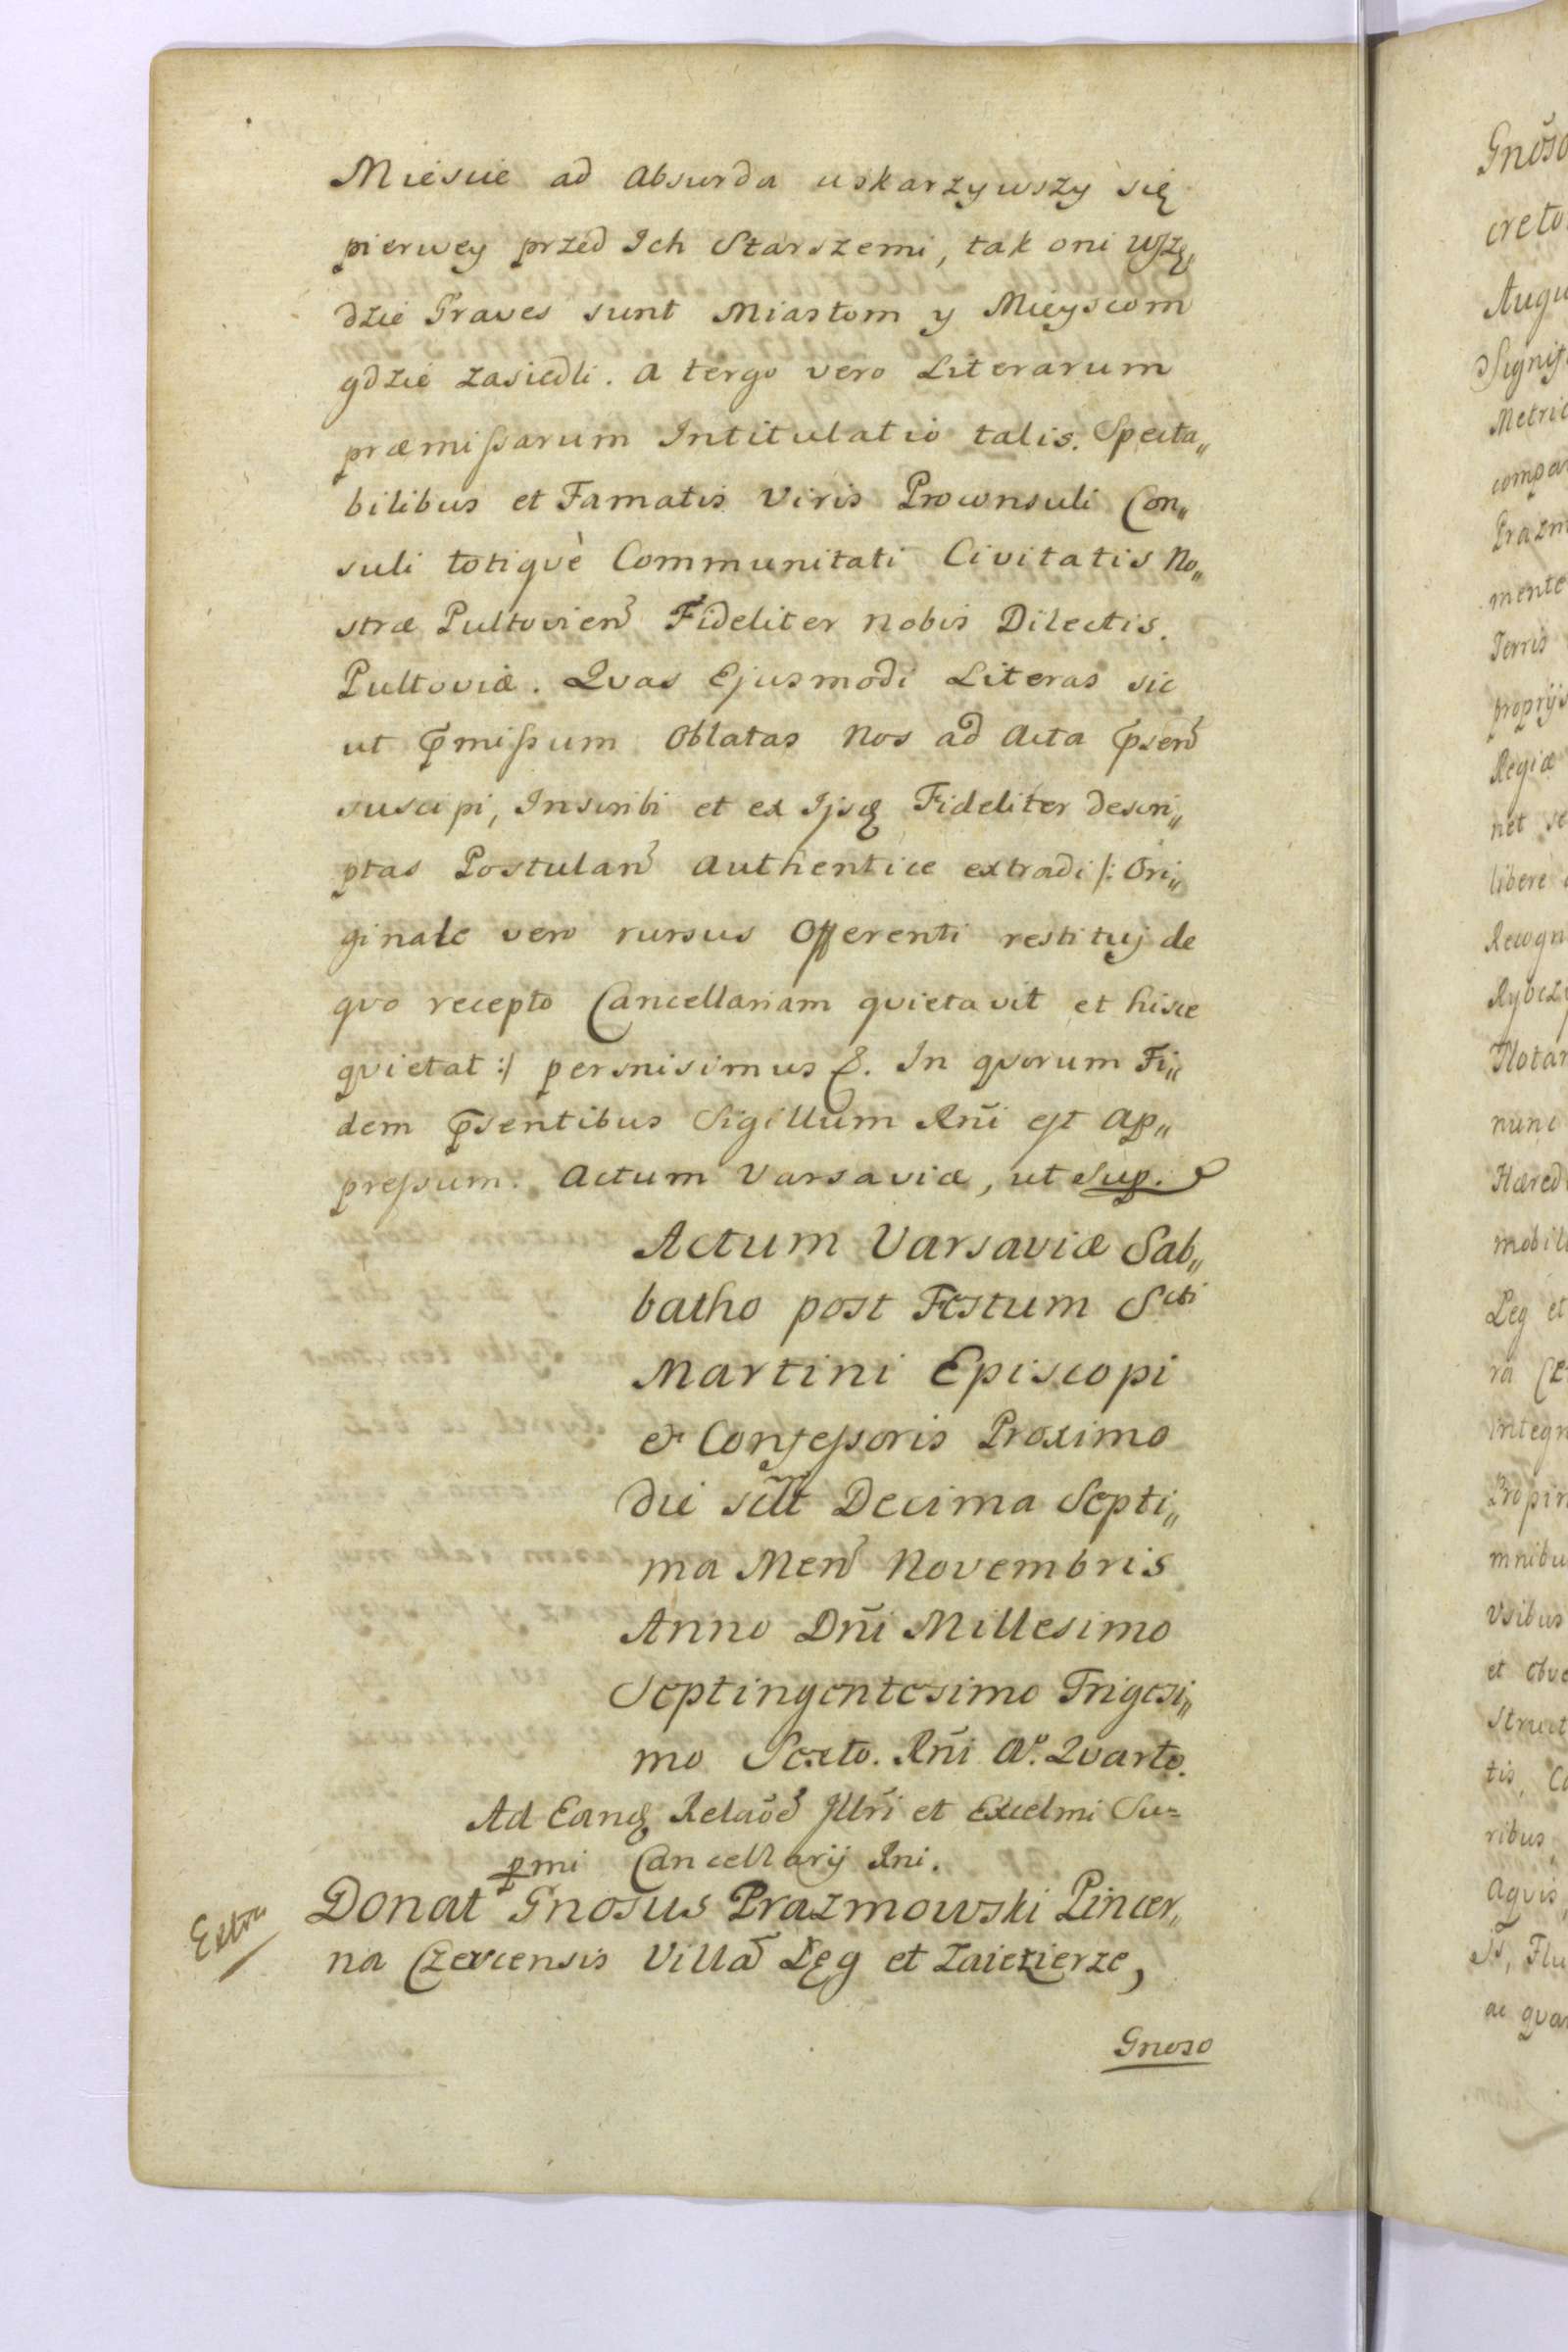 Mieście ad absurda uskarzywszy się
pierwey przed Ich Starszemi, tak oni wszę„
dzie Graves sunt Miastom y Mieyscom
gdzie zasiedli. A tergo vero Literarum
præmissarum Intitulatio talis. Specta„
bilibus et Famatis Viris Proconsuli Con„
suli totiquè Communitati Civitatis No„
stræ Pultovien̄ Fideliter nobis Dilectis.
Pultoviæ. Qvas Ejusmodi Literas sic
ut p̄missum oblatas Nos ad Acta p̄sen̄
suscipi, Inscribi et ex Ijsq̨ Fideliter descri„
ptas Postulan̄ authentice extradi /: Ori„
ginale vero rursus Offerenti restituj de
qvo recepto Cancellariam qvietavit et hisce
qvietat :/ permisimus &. In qvorum Fi„
dem p̄sentibus Sigillum Rñi est ap„
pressum. Actum Varsaviæ, ut Sup.
Actum Varsaviæ Sab„
batho post Festum Scti
Martini Episcopi
& Confessoris Proximo
die scilt Decima Septi„
ma Men̄ Novembris
Anno Dñi Millesimo
Septingentesimo Trigesi„
mo Sexto. Rñi Aº. Qvarto.
Ad Eanq̨ Relaōē Jllr̄i et Excelmi Su=
p̱mi Cancellarij Rni.
Extra
Donat Gnosus Prazmowski Pincer„
na Czercensis Villā Łęg et Zaiezierze,
Gnoso
Gnōso
creto
Augu
Signif
Metric
compar
Prazm
mente
Terris
proprijs
Regiæ
net se
libere
Recogn
Rybcz
Notar
nunc
Hæred
mobil
Łęg et
ra Cz
integr
Propin
mnibu
Vsibus
et obve
Struct
tis, Ca
ribus
Aqvis
Flu
ac qvar